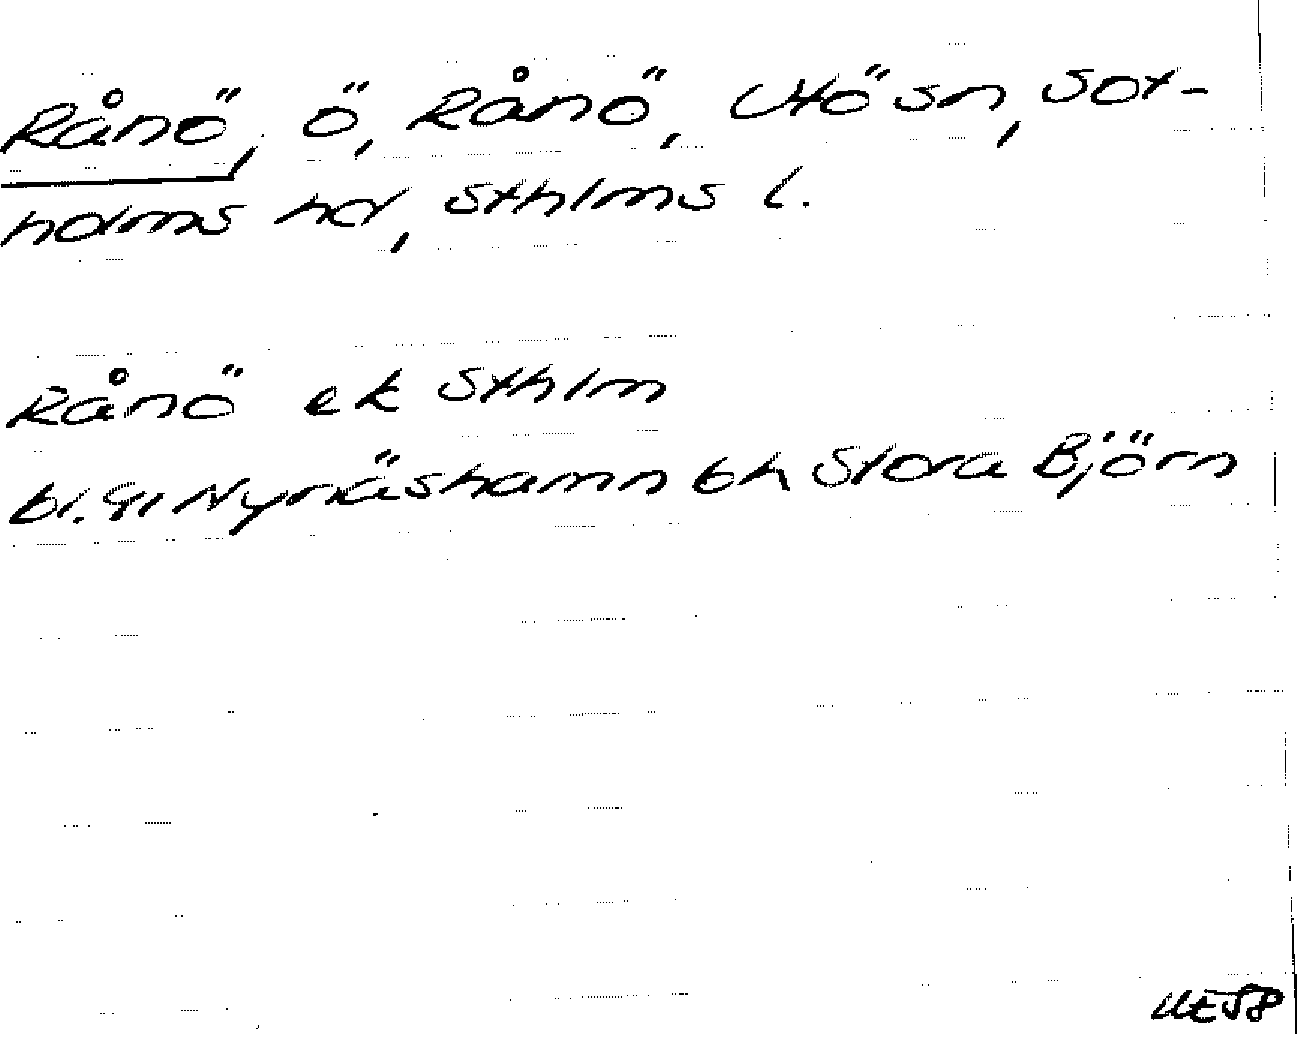 Rånö, ö, Rånö, Utö sn, Sot-
holms hd, Sthlms l.
Rånö ek Sthlm
bl. 91 Nynäshamn bh Stora Björn